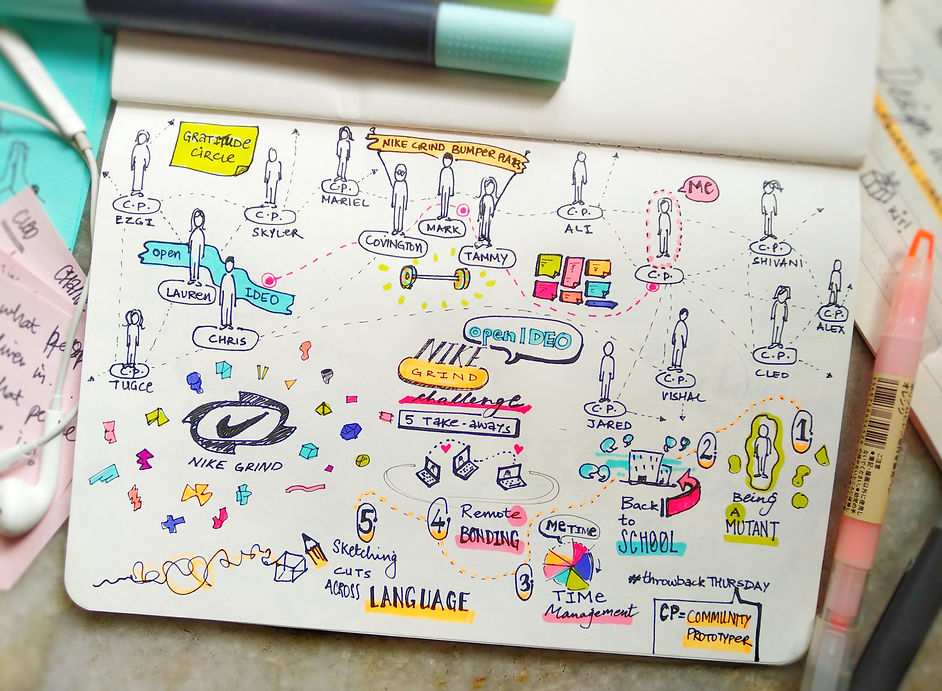 GRATITUDE
CIRCLE
NIKE GRIND BUMPER PLATES
C.P.
EZGI
C.P.
SKYLER
C.P.
MARIEL
COVINGTON
MARK
TAMMY
C.P.
ALI
Me
C.P.
C.P.
SHIVANI
C.P.
ALEX
open
IDEO
LAUREN
CHRIS
C.P.
TUGCE
C.P.
JARED
C.P.
VISHAL
C.P.
CLEO
openIDEO
NIKE
GRIND
challenge
5 TAKE-AWAYS
NIKE GRIND
1
Being
A
MUTANT
2
Back
to
SCHOOL
3
Me TIME
TIME
Management
4
Remote
BONDING
5
Sketching
CUTS
ACROSS
LANGUAGE
#throwback THURSDAY
CP = COMMUNITY
PROTOTYPER
Design
what